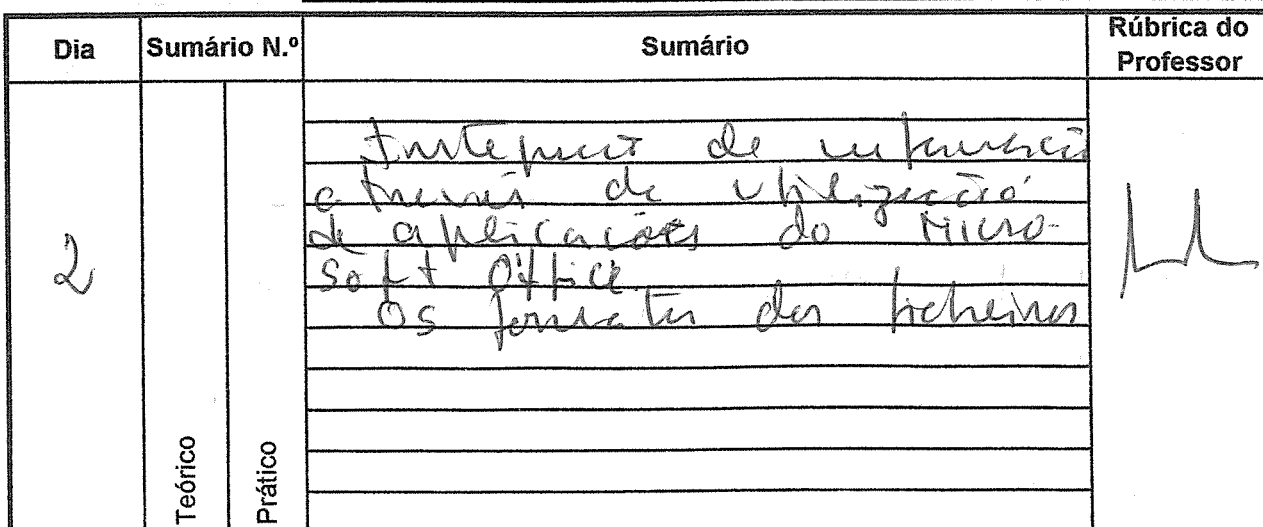 Dia Sumário N.º Sumário Rúbrica do Professor
2
Integração de informação
através da utilização
de aplicações do Micro-
soft Office.
Os formatos dos ficheiros
Teórico
Prático